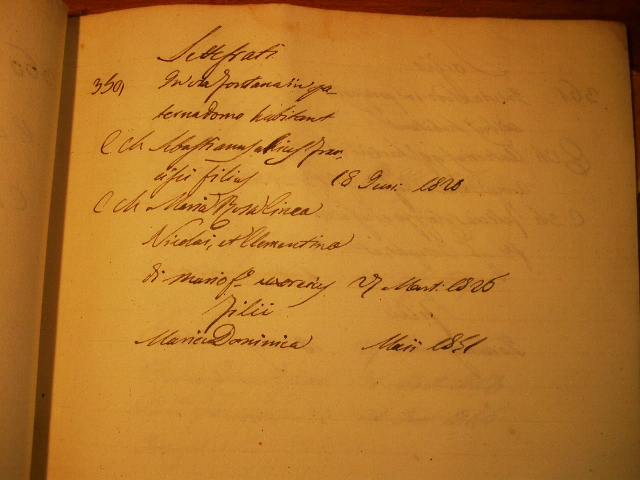 Settefrati
359 In via Fontana in pa-
terna domo habitant
C Ch Sebastianus Fran-
cisci filius 18 Juni 1820
C Ch Maria Rosa
Nicolai, et Clementina
di Mario f.a uxor ejus 27 Mart. 1826
Filii
Maria Dominica Maii 1851